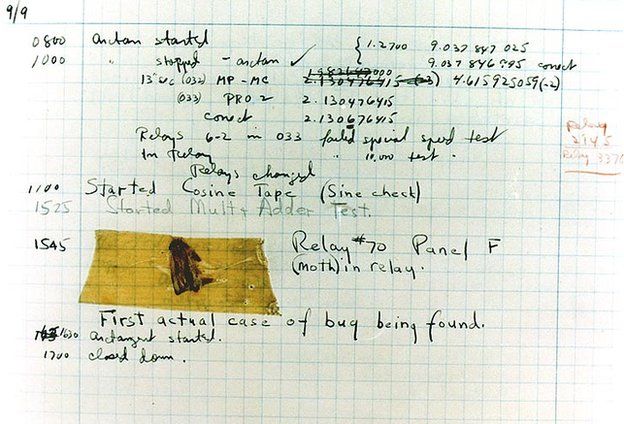 9/9
0800 arctan started
1000 " stopped - arctan ✓ { 1.2700 9.037 847 025
9.037 846 795 correct
13"uc (032) MP-MC 2.130476415 (-3) 4.615925059(-2)
(033) PRO 2 2.130476415
correct 2.130676415
Relays 6-2 in 033 failed special speed test
In Relay " 10.000 test.
Relays changed
Relay
2145
Relay 3370
1100 Started Cosine Tape (Sine check)
1525 Started Mult+Adder Test.
1545 Relay #70 Panel F
(moth) in relay.
First actual case of bug being found.
1630 arctangent started.
1700 closed down.